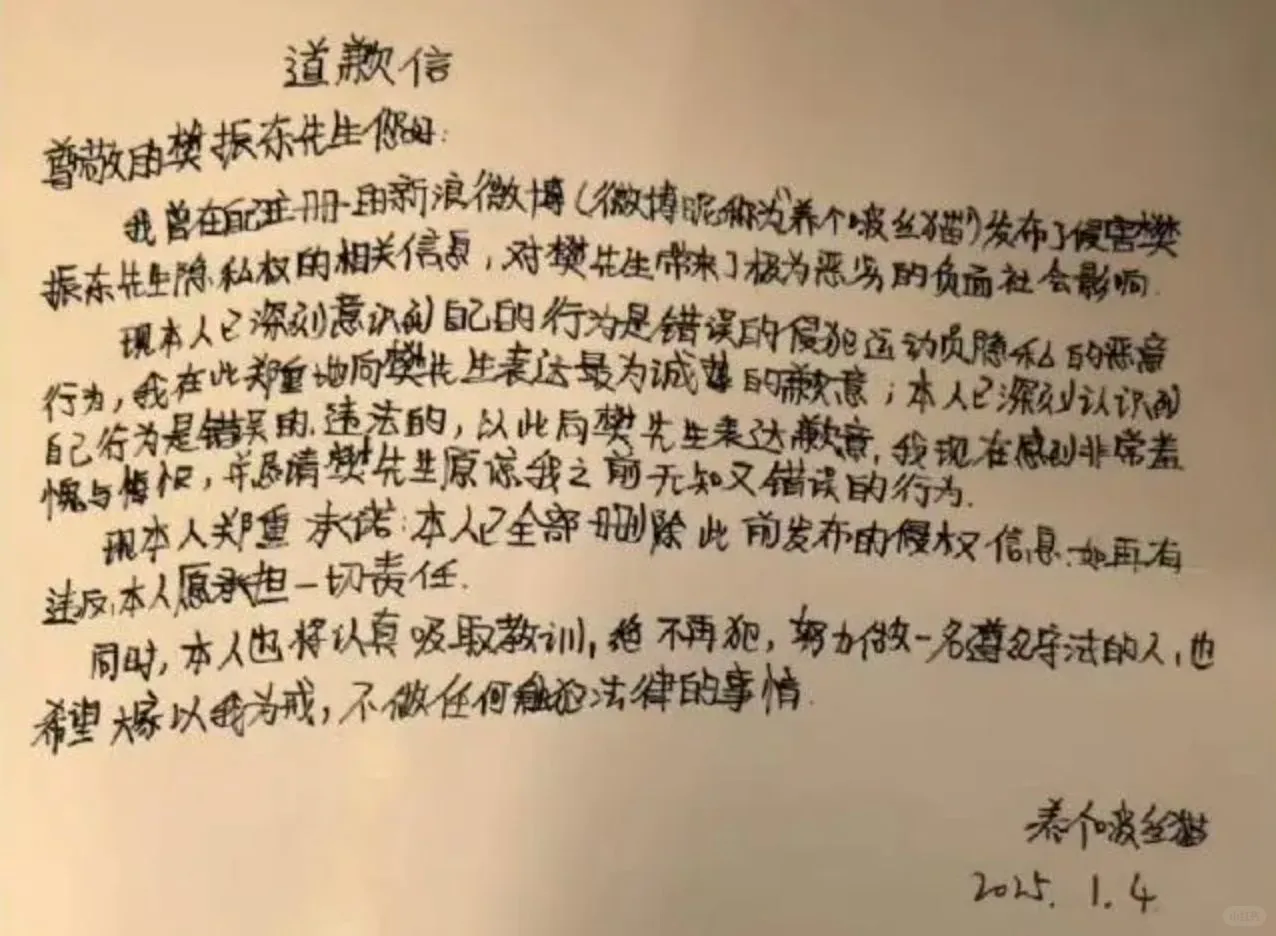 道歉信
尊敬的樊振东先生您好:
我曾在配注册的新浪微博(微博昵称为"养个啵丝猫")发布了侵害樊
振东先生隐私权的相关信息,对樊先生带来了极为恶劣的负面社会影响.
现本人已深刻意识到自己的行为是错误的侵犯运动员隐私的恶意
行为,我在此郑重地向樊先生表达最为诚挚的歉意;本人已深刻认识到
自己行为是错误的.违法的,以此向樊先生表达歉意,我现在感到非常羞
愧与悔恨,并恳请樊先生原谅我之前无知又错误的行为.
现本人郑重承诺:本人已全部删除此前发布的侵权信息.如再有
违反,本人愿承担一切责任.
同时,本人也将认真吸取教训,绝不再犯,努力做一名遵纪守法的人,也
希望大家以我为戒,不做任何触犯法律的事情.
养个啵丝猫
2025.1.4